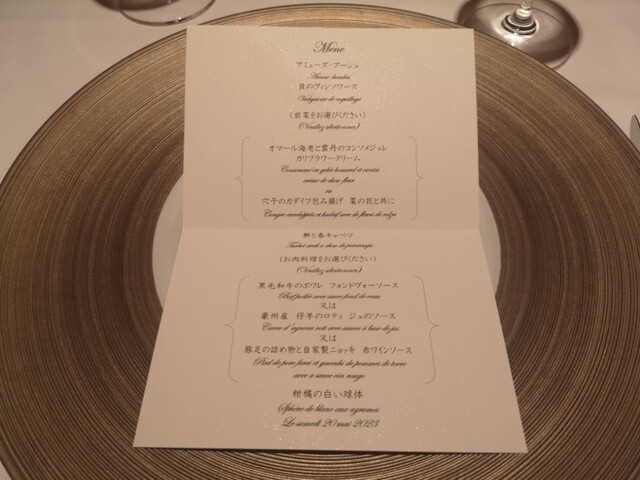 Menu
アミューズ・ブーシュ
Amuse-bouches
貝のヴィシソワーズ
Vichyssoise de coquillage
(前菜をお選びください)
(Veuillez sélectionner)
オマール海老と雲丹のコンソメジュレ
カリフラワークリーム
Consommé en gelée homard et oursin
crème de chou-fleur
ou
穴子のカダイフ包み揚げ 菜の花と共に
Congre enveloppées et kadaif avec de fleurs de colza
鮃と春キャベツ
(お肉料理をお選びください)
(Veuillez sélectionner)
黒毛和牛のポワレ フォンドヴォーソース
Bœuf poêlée avec sauce fond de veau
又は
豪州産 仔羊のロティ ジュのソース
Carré d'agneau roti avec sauces à base de jus
又は
豚足の詰め物と自家製ニョッキ 赤ワインソース
Pied de porc farci et gnocchi de pommes de terre
avec a sauce vin rouge
柑橘の白い球体
Sphère de blanc aux agrumes
Le samedi 20 mai 2023